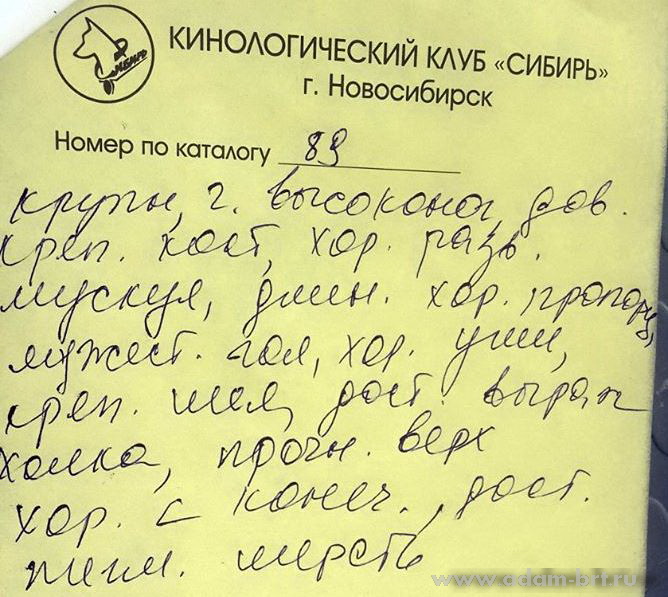 СИБИРЬ
КИНОЛОГИЧЕСКИЙ КЛУБ «СИБИРЬ»
г. Новосибирск
Номер по каталогу 89
крупн, г. высоконог, дов.
креп. кост, хор. разв.
мускул, длин. хор. пропорц,
мужест. гол, хор. уши,
креп. шея, дост. выраж
холка, прочн. верх
хор. с конеч., дост.
пигм. шерсть
www.adam-brt.ru